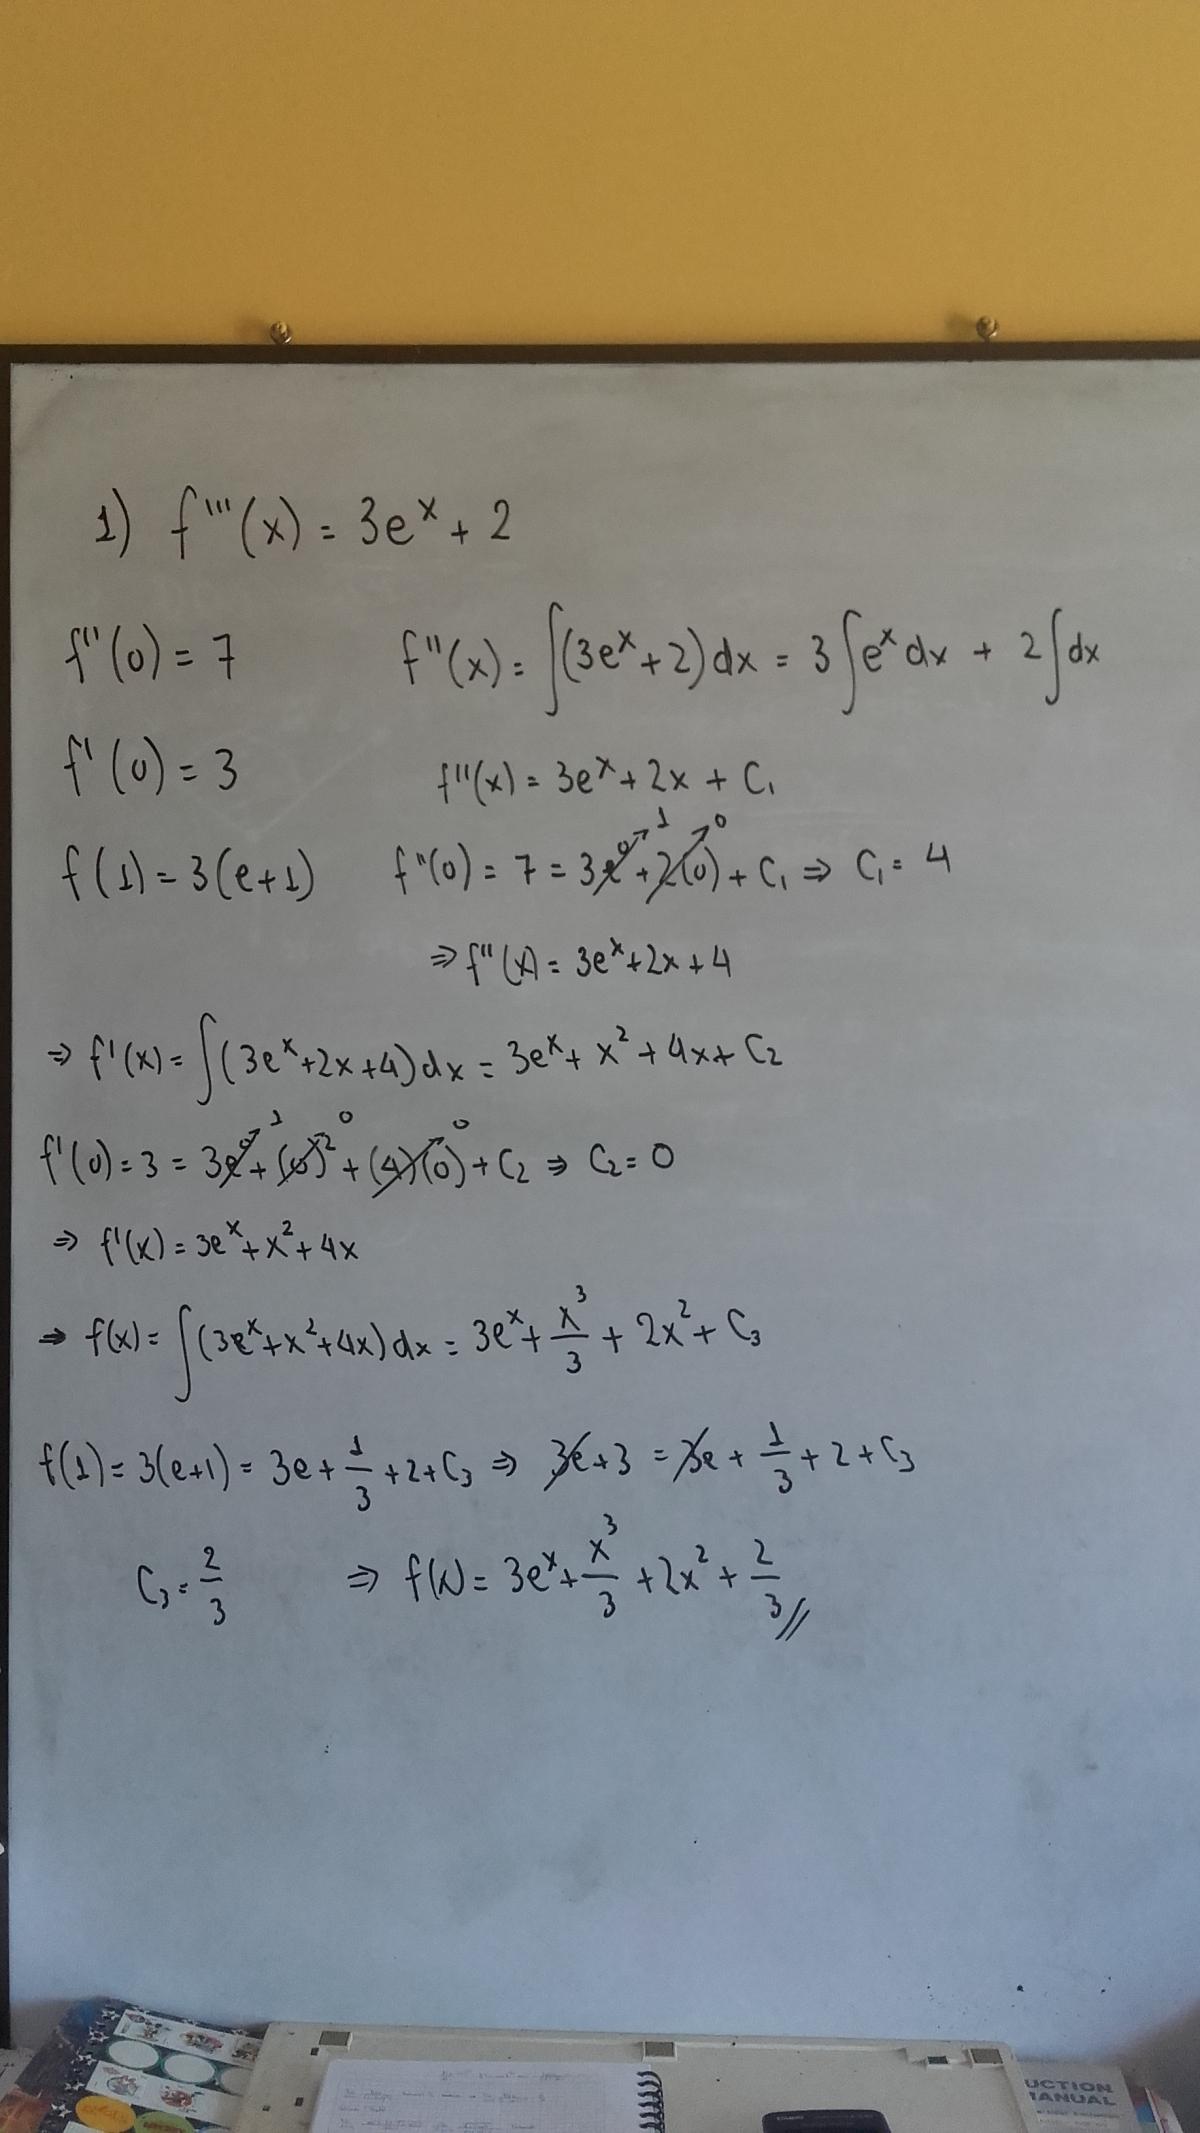 1) f'''(x) = 3eˣ + 2
f''(0) = 7
f''(x) = ∫(3eˣ + 2)dx = 3∫eˣdx + 2∫dx
f'(0) = 3
f''(x) = 3eˣ + 2x + C₁
f(1) = 3(e+1)
f''(0) = 7 = 3e⁰ + 2(0) + C₁ ⇒ C₁ = 4
1 0
⇒ f''(x) = 3eˣ + 2x + 4
⇒ f'(x) = ∫(3eˣ + 2x + 4)dx = 3eˣ + x² + 4x + C₂
f'(0) = 3 = 3e⁰ + (0)² + (4)(0) + C₂ ⇒ C₂ = 0
1 0 0
⇒ f'(x) = 3eˣ + x² + 4x
⇒ f(x) = ∫(3eˣ + x² + 4x)dx = 3eˣ + x³/3 + 2x² + C₃
f(1) = 3(e+1) = 3e + 1/3 + 2 + C₃ ⇒ 3e + 3 = 3e + 1/3 + 2 + C₃
C₃ = 2/3 ⇒ f(x) = 3eˣ + x³/3 + 2x² + 2/3 //
UCTION
MANUAL